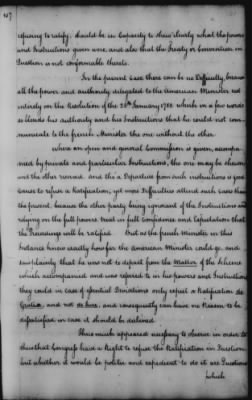 refusing to ratify, should be in Capacity to shew clearly what the powers
and Instructions given were, and also that the Treaty or Convention in
Question is not conformable thereto.
In the present Case there can be no Difficulty, because
all the power and authority delegated to the American Minister rest
entirely on the Resolution of the 25th January 1782, which in a few words
so blends his authority and his Instructions that he could not com-
municate to the french Minister the one without the other.
Where an open and general Commission is given, accompa-
nied by private and particular Instructions, the one may be shewn
and the other remain and tho' a Departure from such instructions is good
Cause to refuse a Ratification, yet more Difficulties attend such case than
the present, because the other party being ignorant of the Instructions and
relying on the full powers treat in full Confidence and Expectation that
the Proceedings will be ratified. But as the french Minister in this
Instance knew exactly how far the American Minister could go, and
particularly that he was not to depart from the Matter of the Scheme
which accompanied and was referred to in his powers and Instructions
they could in case of essential Deviations only expect a Ratification de
Gratia, and not de Jure, and consequently can have no Reason to be
dissatisfied in case it should be declined.
Thus much appeared necessary to observe in order to
shew that Congress have a Right to refuse the Ratification in Question
but whether it would be politic and expedient to do it are Questions
which